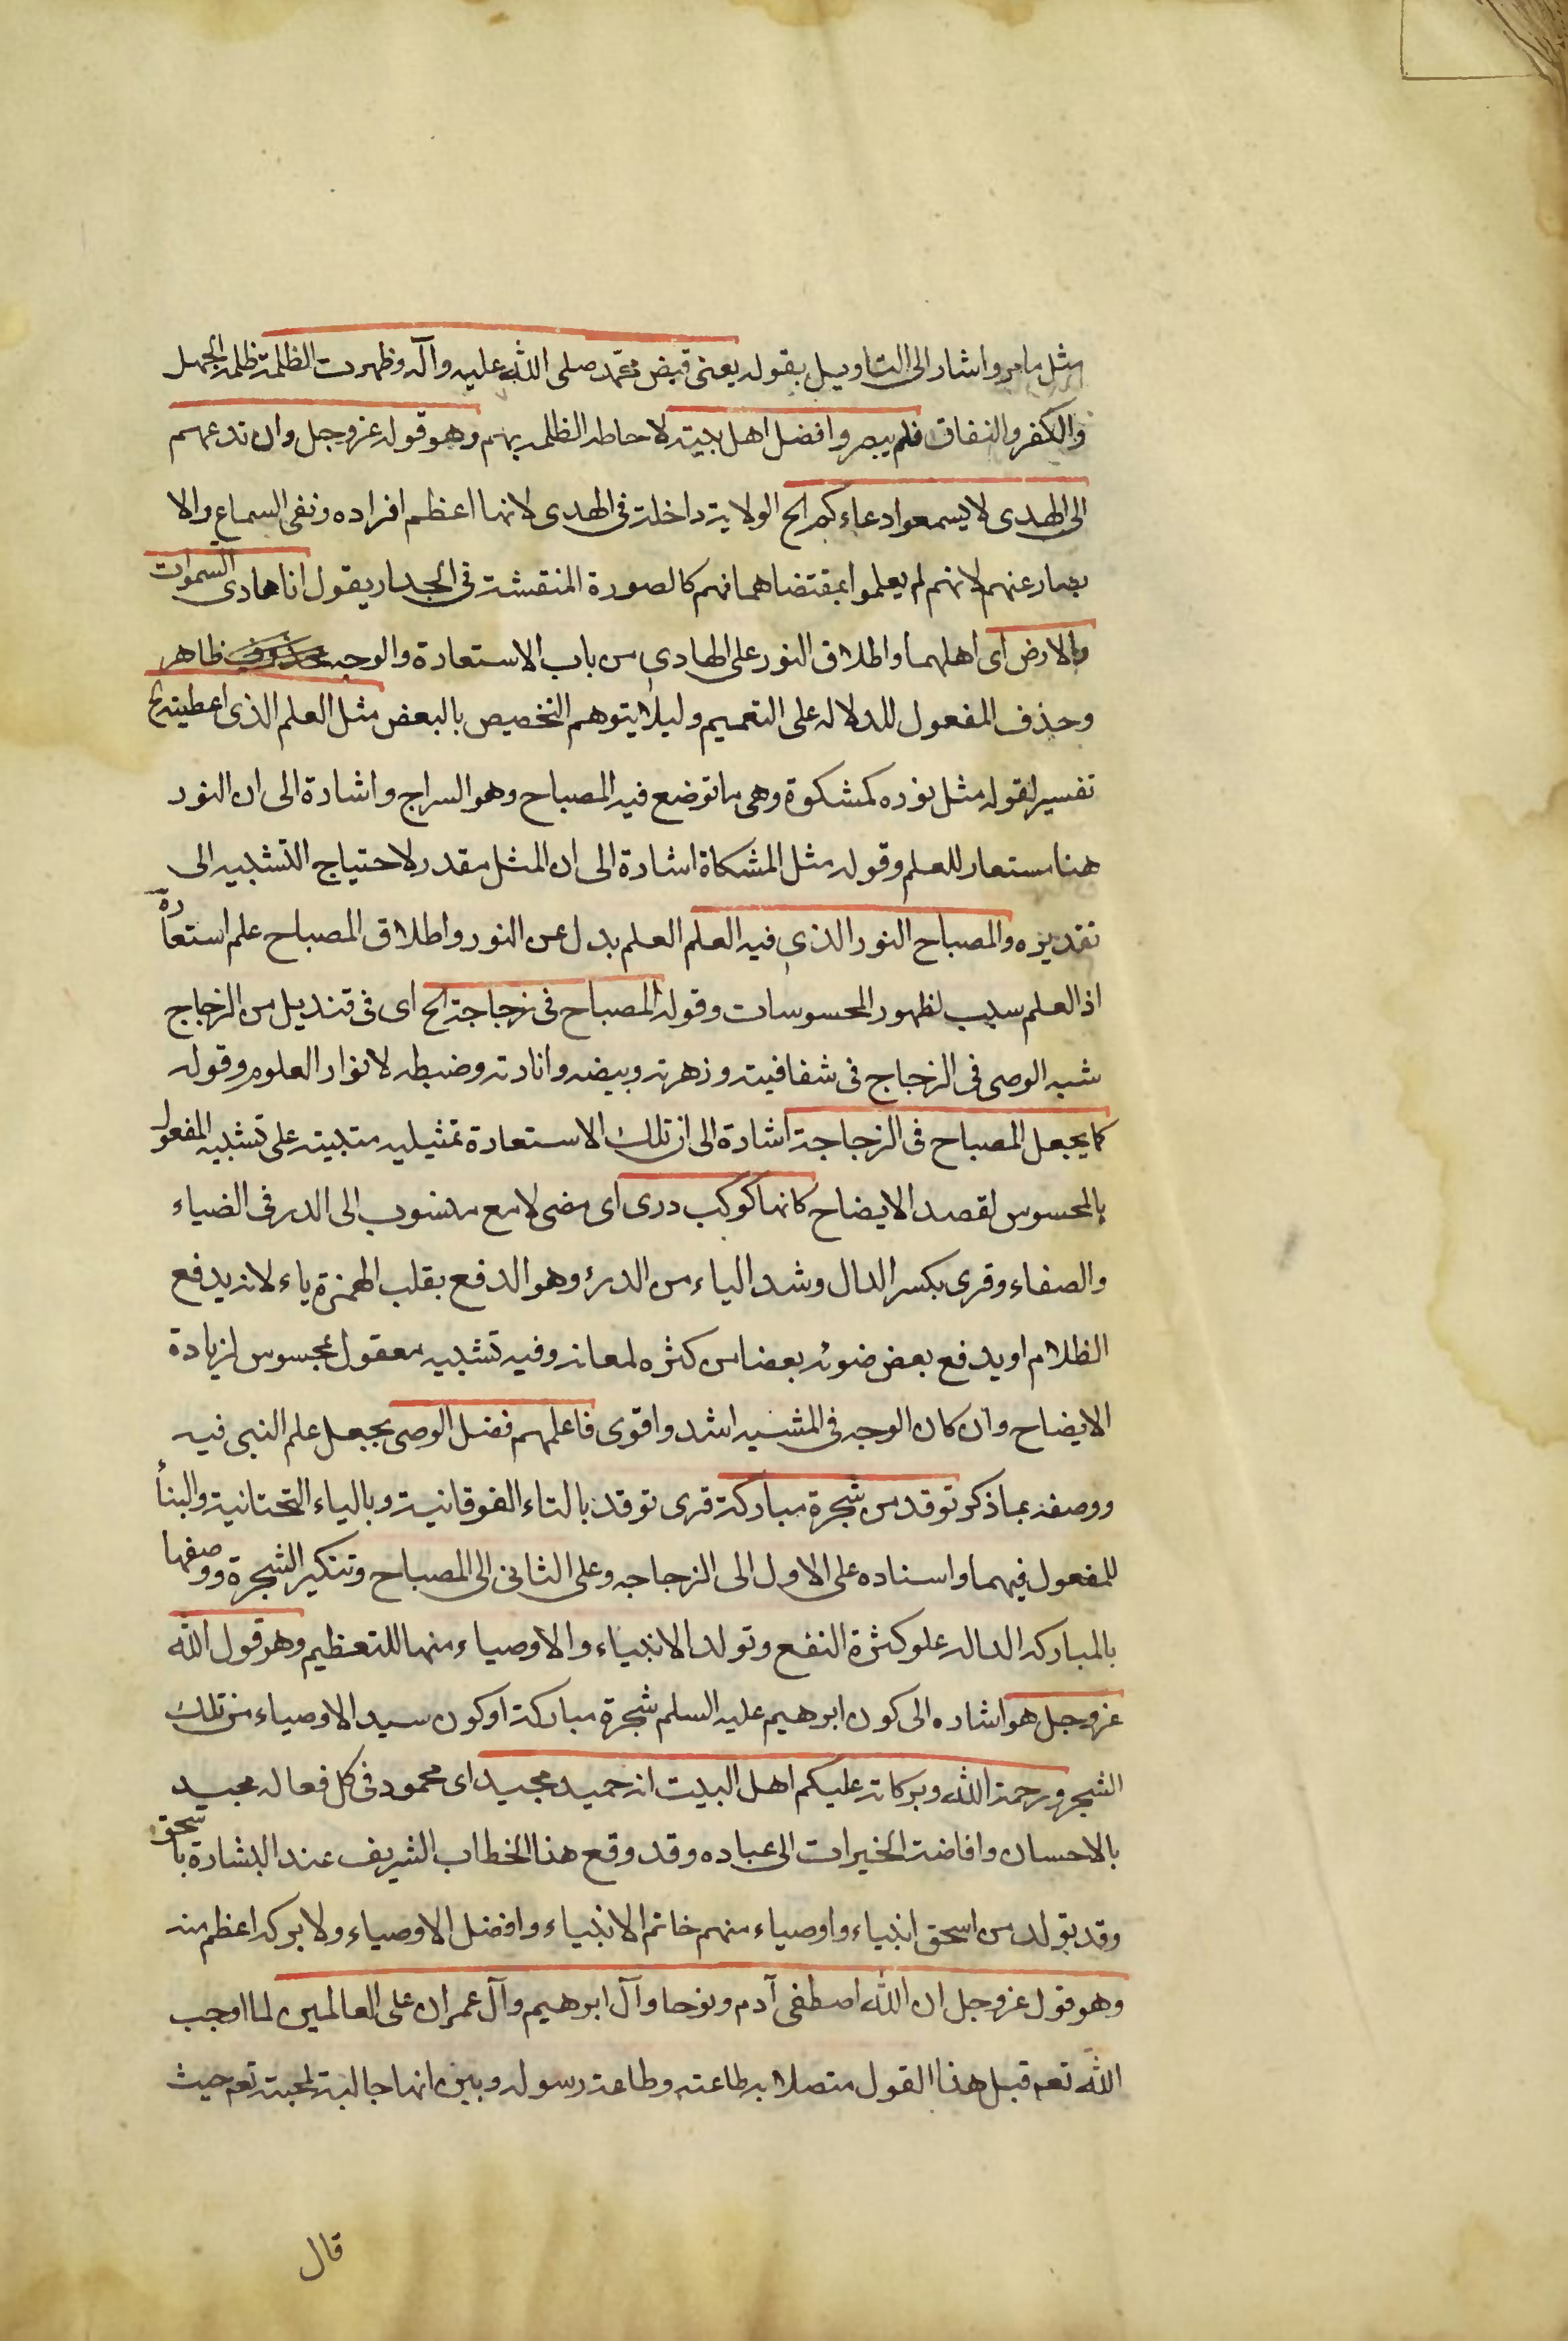 مثل ما مر واشار الى التاويل بقوله يعنى قبض محمد صلى الله عليه وآله وظهرت الظلمة ظلمة الجهل
والكفر والنفاق فلم يبصروا فضل اهل بيته لاحاطه الظلمه بهم وهو قوله عز وجل وان تدعهم
الى الهدى لا يسمعوا دعاءكم الخ الولاية داخلة فى الهدى لانها اعظم افراده ونفى السماع والا
بصار عنهم لانهم لم يعلموا بمقتضاهما فهم كالصورة المنقشة فى الجدار يقول انا هادى السموات
والارض اى اهلهما واطلاق النور على الهادى من باب الاستعارة والوجه ظاهر
وحذف المفعول للدلاله على التعميم وليلا يتوهم التخصيص بالبعض مثل العلم الذى اعطيته الخ
تفسير لقوله مثل نوره كمشكوة وهى ما توضع فيه المصباح وهو السراج واشارة الى ان النور
هنا مستعار للعلم وقوله مثل المشكاة اشارة الى ان المثل مقدر لاحتياج التشبيه الى
تقديره والمصباح النور الذى فيه العلم العلم بدل عن النور واطلاق المصباح علم استعارة
اذ العلم سبب لظهور المحسوسات وقوله المصباح فى زجاجة الخ اى فى قنديل من الزجاج
شبه الوصى فى الزجاج فى شفافيته وزهرته وبيضه وانارته وضبطه لانوار العلوم وقوله
كما يجعل المصباح فى الزجاجة اشارة الى ان تلك الاستعارة تمثيليه متبينه على تشبيه المفعول
بالمحسوس لقصد الايضاح كانها كوكب درى اى مضى لامع منسوب الى الدر فى الضياء
والصفاء وقرى بكسر الدال وشد الياء من الدرؤ وهو الدفع بقلب الهمزة ياء لانه يدفع
الظلام او يدفع بعض ضوئه بعضا من كثره لمعانه وفيه تشبيه معقول بمحسوس لزيادة
الايضاح وان كان الوجه فى المشبه اشد واقوى فاعلمهم فضل الوصى بجعل علم النبى فيه
ووصفه بما ذكر توقد من شجرة مباركة قرى توقد بالتاء الفوقانية وبالياء التحتانية والبناء
للمفعول فيهما واسناده على الاول الى الزجاجه وعلى الثانى الى المصباح وتنكير الشجرة ووصفها
بالمباركه الداله علو كثرة النفع وتولد الانبياء والاوصياء منها للتعظيم وهو قول الله
عز وجل هو اشاره الى كون ابرهيم عليه السلم شجرة مباركة او كون سيد الاوصياء من تلك
الشجر ورحمة الله وبركاته عليكم اهل البيت انه حميد مجيد اى محمود فى كل فعاله مجيد
بالاحسان وافاضة الخيرات الى عباده وقد وقع هذا الخطاب الشريف عند البشارة باسحق
وقد يتولد من اسحق انبياء واوصياء منهم خاتم الانبياء وافضل الاوصياء ولا بركه اعظم منه
وهو قول عز وجل ان الله اصطفى آدم ونوحا وآل ابرهيم وآل عمران على العالمين لما اوجب
الله تعم قبل هذا القول متصلا به طاعته وطاعة رسوله وبين انها جالبة لمحبته تعم حيث
قال